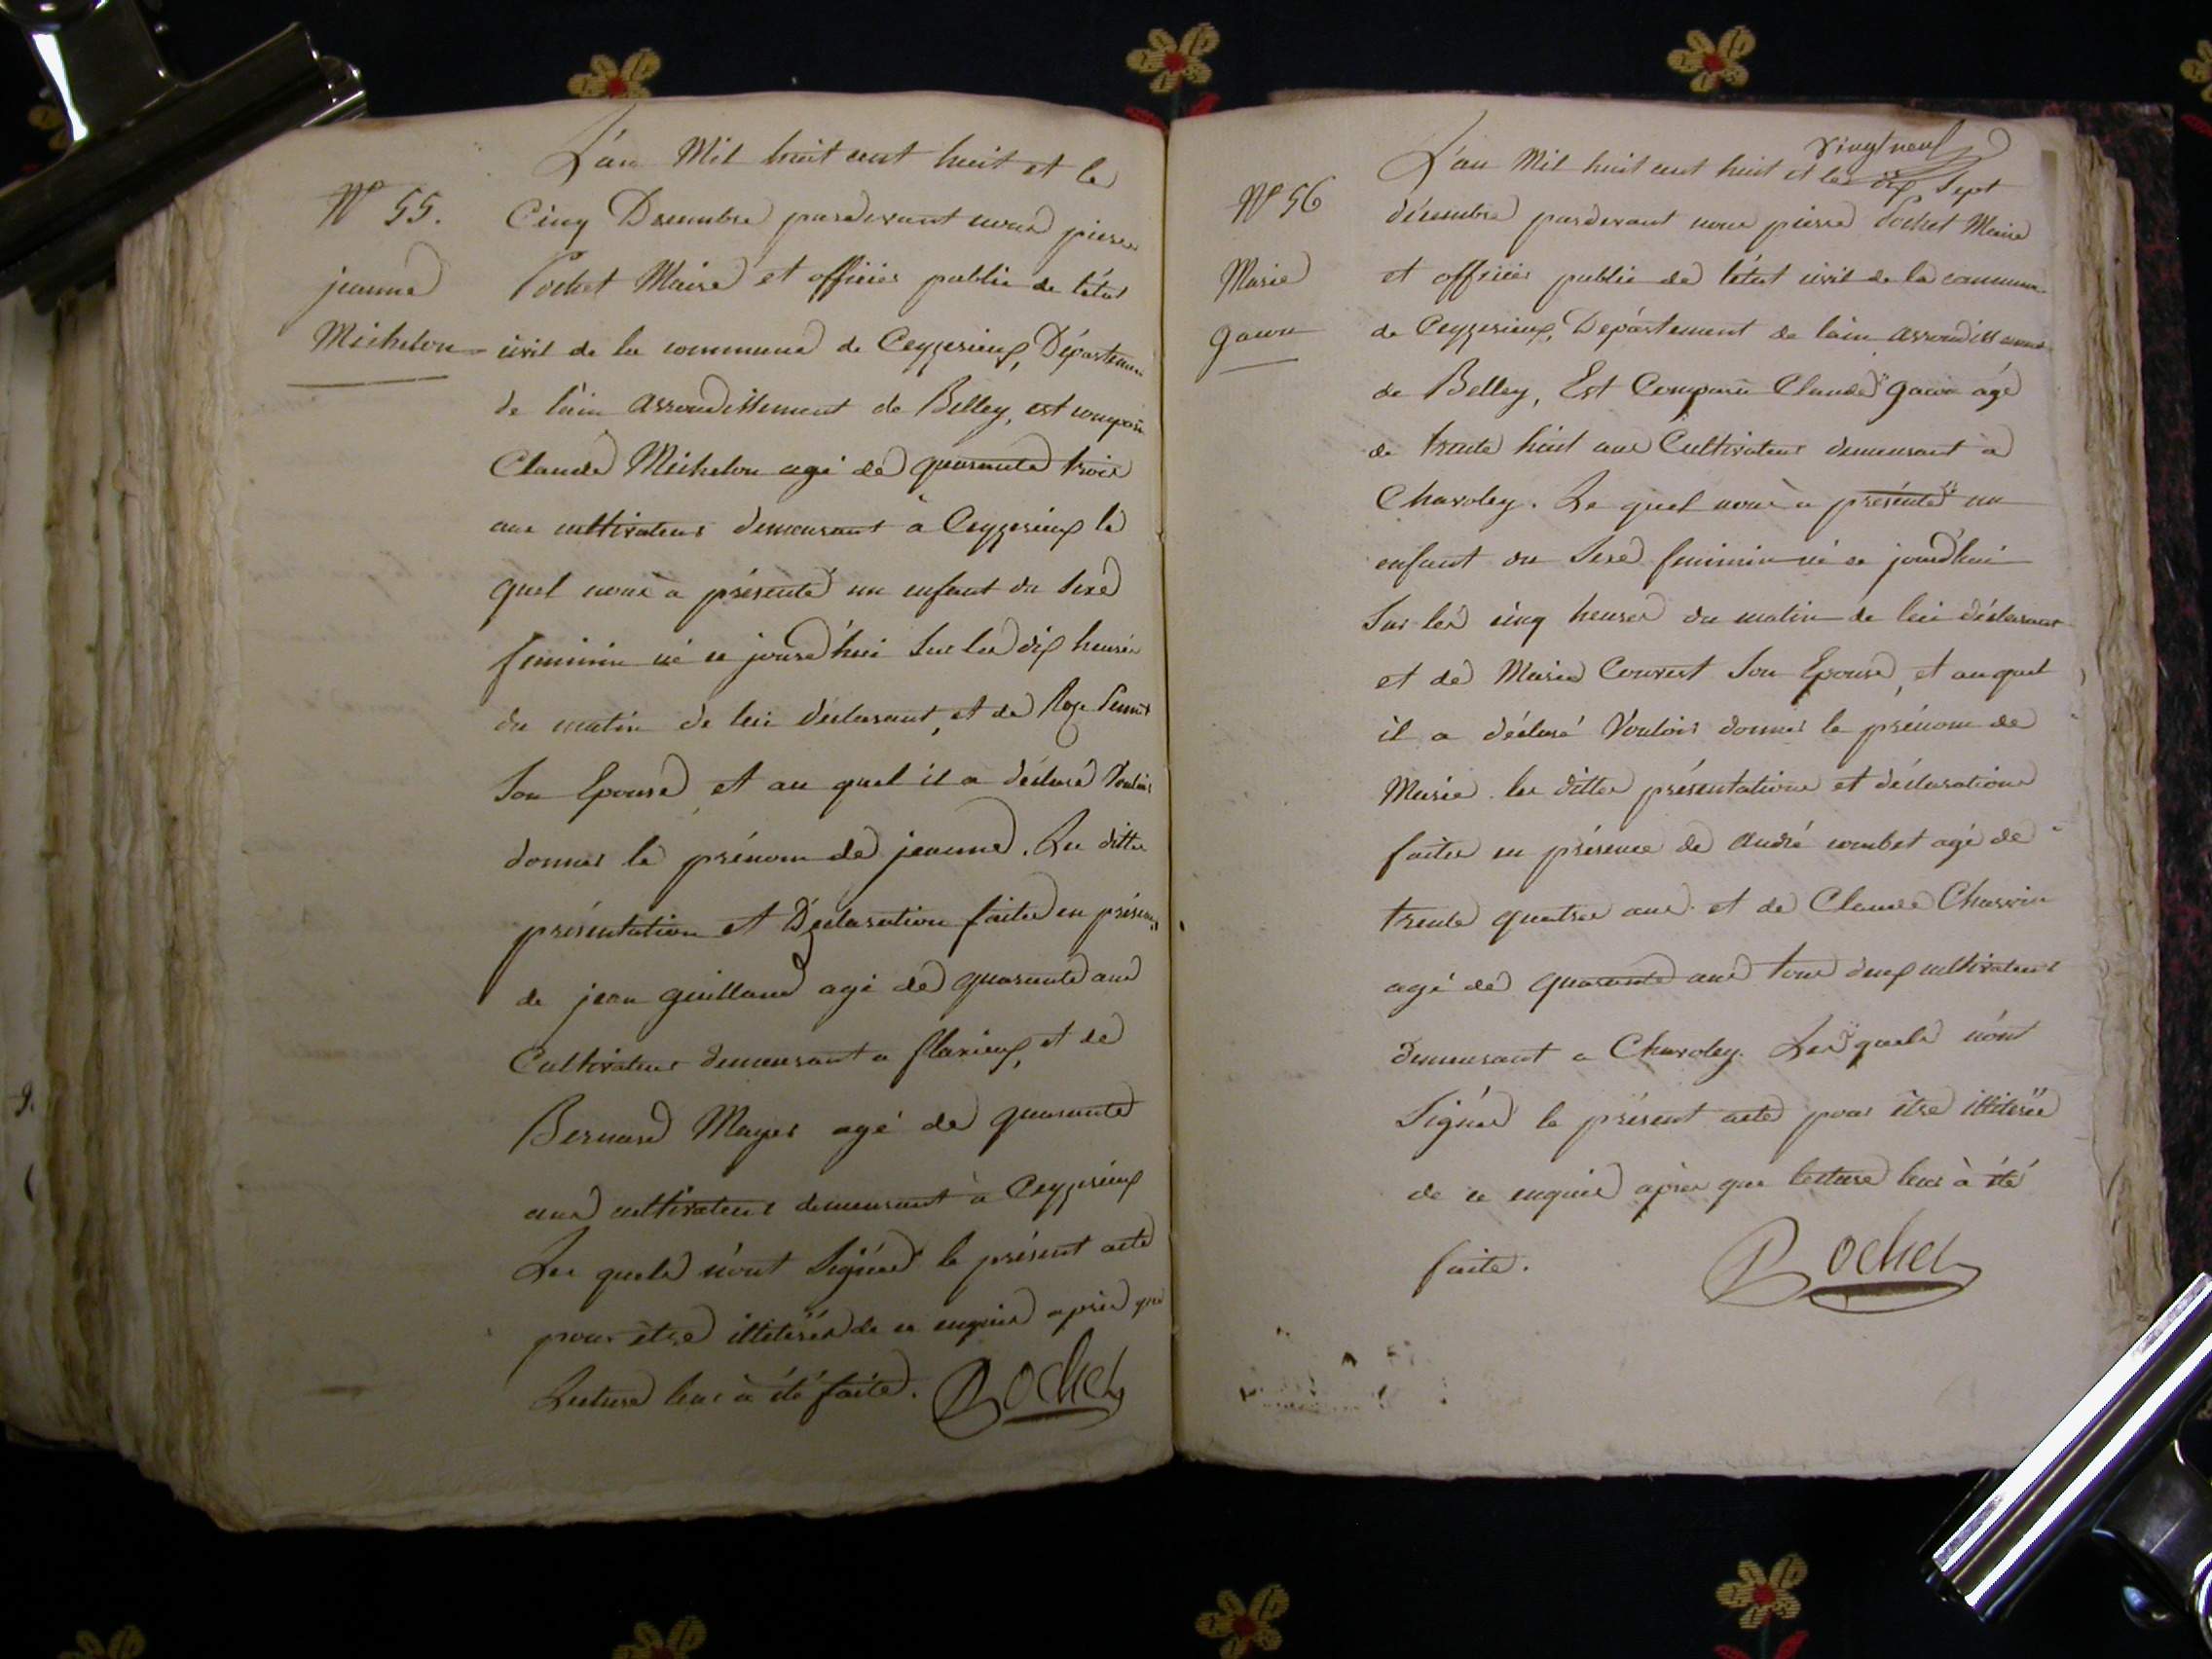 L'an Mil huit cent huit et le
N° 55.
Cinq Decembre pardevant nous pierre
jeanne
Pochet Maire et officier public de l'état
Michelon
civil de la commune de Ceyzerieux, Département
de l'ain arrondissement de Belley, est comparu
Claude Michelon agé de quarante trois
ans cultivateur demeurant à Ceyzerieux le
quel nous a présenté un enfant du sexe
feminin né ce jourd'hui sur les dix heures
du matin de lui déclarant, et de
son Epouse, et au quel il a déclaré Vouloir
donner le prénom de jeanne. Les dittes
présentation et Déclaration faites en présence
de jean guilland agé de quarante ans
Cultivateur demeurant a flaxieux, et de
Bernard Mayer agé de quarante
ans cultivateur demeurant à Ceyzerieux
Les quels n'ont Signés le présent acte
pour être illiterés de ce enquis après que
Lecture leur à été faite. Pochet
vingt neuf
L'an Mil huit cent huit et les dix Sept
N° 56
décembre pardevant nous pierre Pochet Maire
Marie
et officier public de l'état civil de la commune
gavon
de Ceyzerieux, Département de l'ain arrondissement
de Belley, Est Comparu Claude agé
de trente huit ans Cultivateur demeurant a
Chavoley. Le quel nous a présenté un
enfant du Sexe feminin né ce jourd'hui
Sur les cinq heures du matin de lui déclarant
et de Marie Couvert Son Epouse, et au quel
il a déclaré Vouloir donner le prénom de
Marie. les dittes présentations et déclarations
faites en présence de André combet agé de
trente quatre ans et de Claude Charvin
agé de quarante ans tous deux cultivateurs
demeurant a Chavoley. Les quels n'ont
Signés le présent acte pour être illiterés
de ce enquis après que lecture leur à été
faite. Pochet